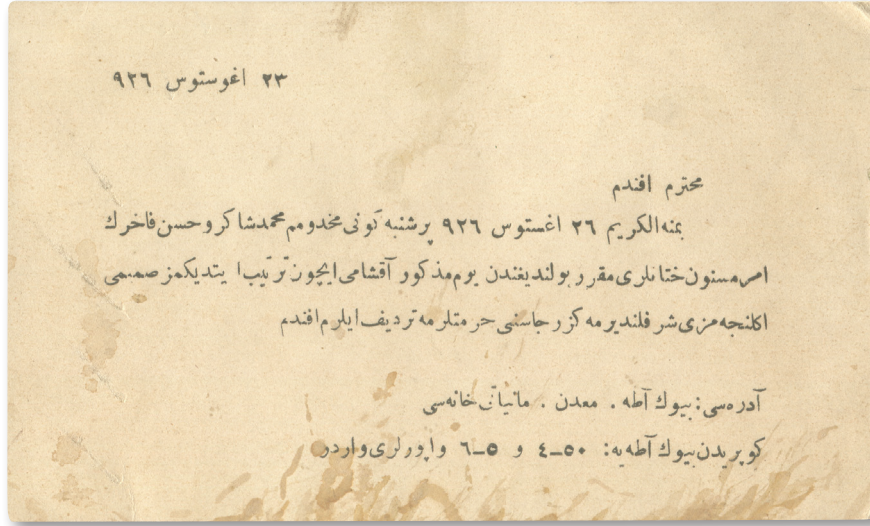 ٢٣ اغوستوس ٩٢٦
محترم افندم
بمنه الكريم ٢٦ اغستوس ٩٢٦ پرشنبه كونى مخدومم محمد شاكر و حسن فاخرك
امر مسنون ختانلرى مقرر بولنديغندن يوم مذكور آقشامى ايچون ترتيب ايتديكمز صميمى
اكلنجه مزى شرفلنديرمه كز رجاسنى حرمتلرمه ترديف ايلرم افندم
آدره سى: بيوك آطه . معدن . خانه سى
كوپريدن بيوك آطه يه: ٥٠-٤ و ٥-٦ واپورلرى واردر